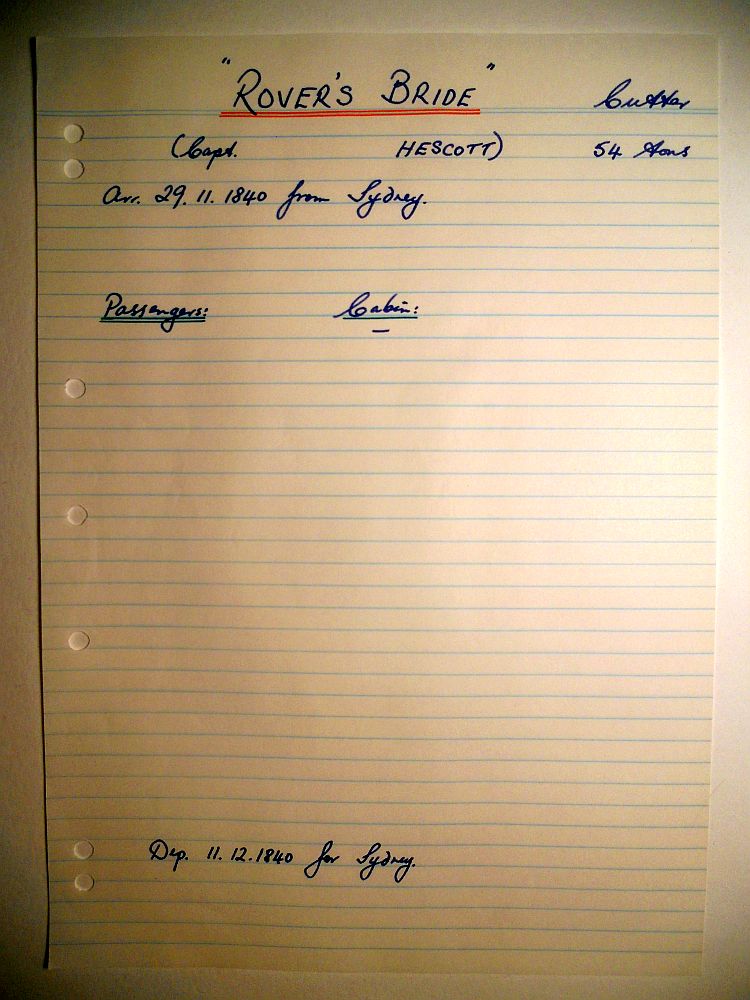 "ROVER'S BRIDE" Cutter
(Capt. HESCOTT) 54 tons
Arr. 29.11.1840 from Sydney.
Passengers: Cabin:
—
Dep. 11.12.1840 for Sydney.